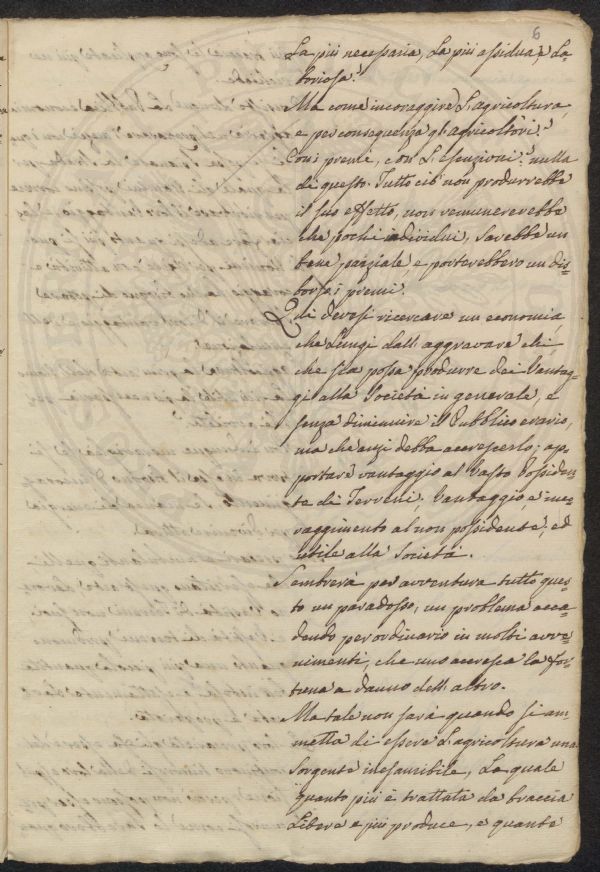 6
La più necessaria, La più assidua, e La-
boriosa?
Ma come incoraggire L'agricoltura,
e per conseguenza gli agricoltori?
Con i premi, con L'Esenzioni? nulla
di questo. Tutto ciò non produrrebbe
il suo effetto, non remunererebbe
che pochi individui, sarebbe un
bene parziale, e porterebbero un dis-
borso i premi.
Quindi devesi ricercare un economia,
che Lungi dall'aggravare chi
che sia possa produrre dei Vantag-
gi alla Società in generale, e
senza diminuire il Pubblico erario,
ma che anzi debba accrescerlo; ap-
portare vantaggio al Vasto Possiden-
te di Terreni, Vantaggio, e inco-
raggimento al non possidente, ed
utile alla Società.
Sembrerà per avventura tutto ques-
to un paradosso, un problema acca-
dendo per ordinario in molti avve-
nimenti, che uno accresca la For-
tuna a danno dell'altro.
Ma tale non sarà quando si am-
metta di essere L'agricoltura una
Sorgente inesauribile, La quale
quanto più è trattata da braccia
Libere e più produce, e quante